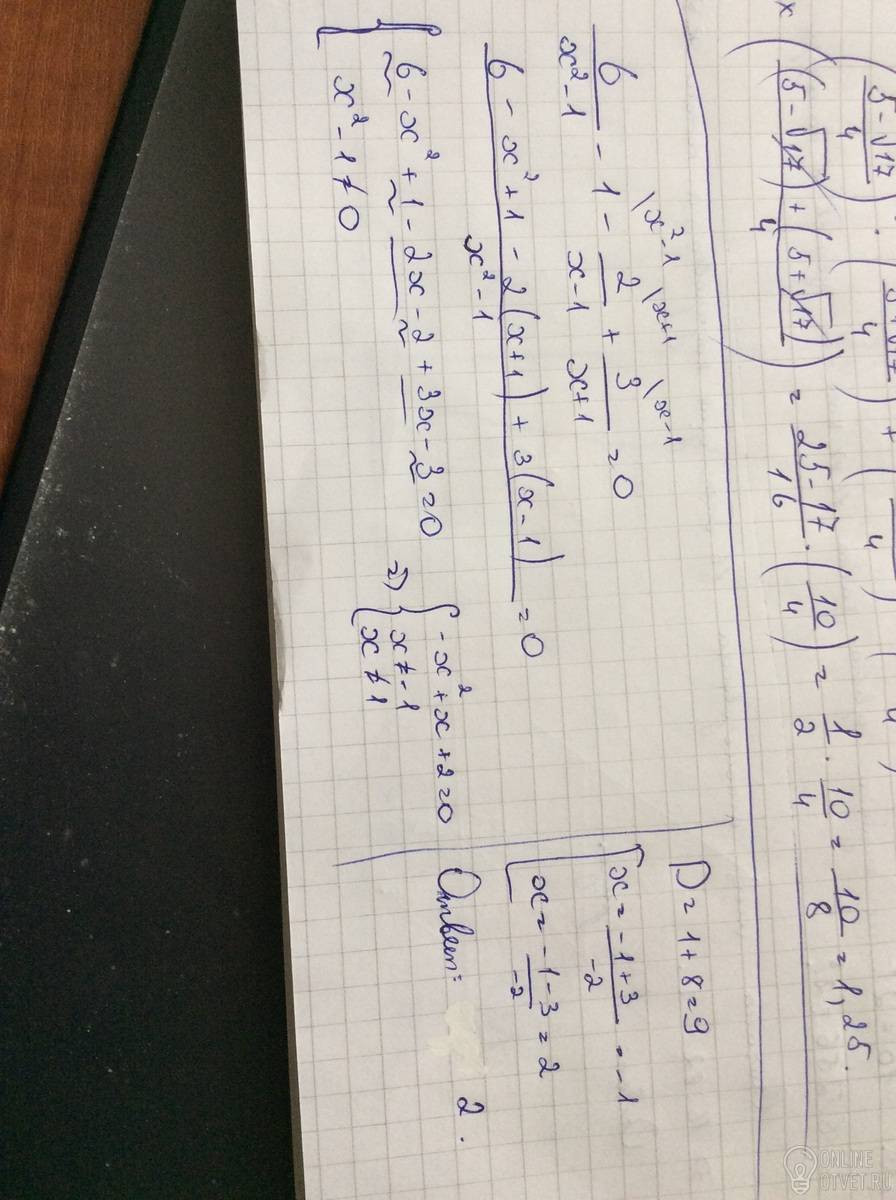 x
(5-√17)/4 · (5+√17)/4) + (
((5-√17)+(5+√17))/4) = (25-17)/16 · (10/4) = 1/2 · 10/4 = 10/8 = 1,25.
\x²-1 \x+1 \x-1
6/(x²-1) - 1 - 2/(x-1) + 3/(x+1) = 0
(6 - x² + 1 - 2(x+1) + 3(x-1))/(x²-1) = 0
{ 6 - x² + 1 - 2x - 2 + 3x - 3 = 0
x² - 1 ≠ 0
2) { -x² + x + 2 = 0
x ≠ -1
x ≠ 1
D = 1 + 8 = 9
[ x = (-1+3)/-2 = -1
x = (-1-3)/-2 = 2
Ответ: 2.
ONLINE
OTVET.RU